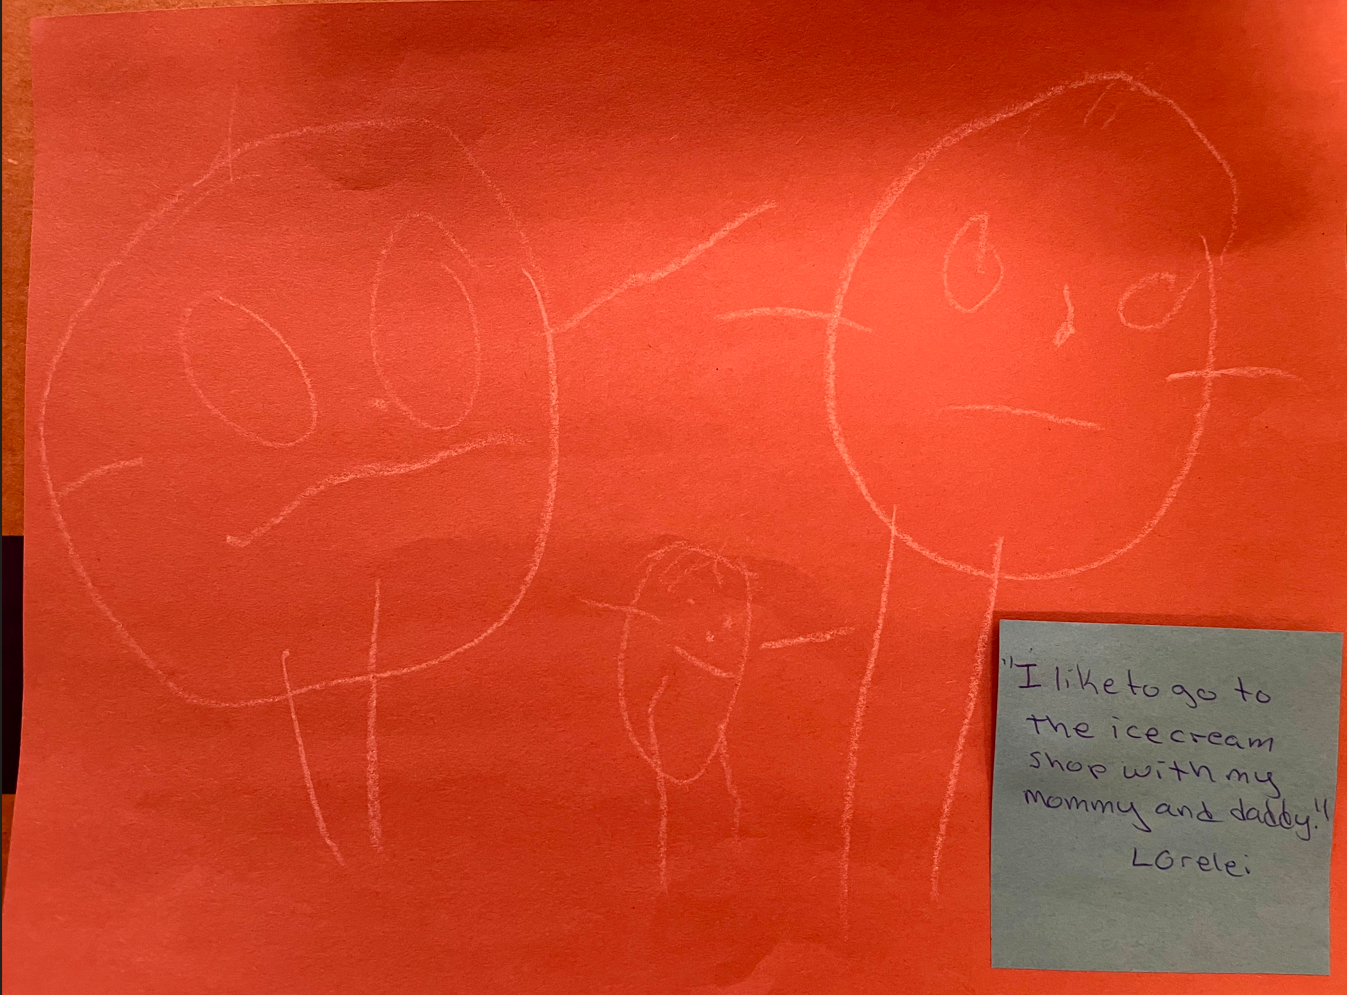 "I like to go to
the icecream
shop with my
mommy and daddy!"
Lorelei